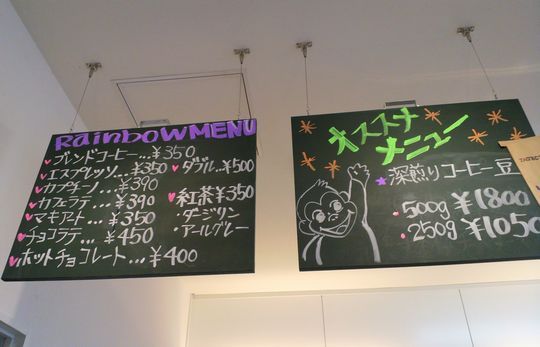 Rainbow MENU
ブレンドコーヒー...¥350
エスプレッソ...¥350
カプチーノ...¥390
カフェラテ...¥390
マキアート...¥350
チョコラテ...¥450
ホットチョコレート...¥400
ダブル...¥500
紅茶¥350
・ダージリン
・アールグレー
オススナ
メニュー
深煎りコーヒー豆
500g ¥1800
250g ¥1050